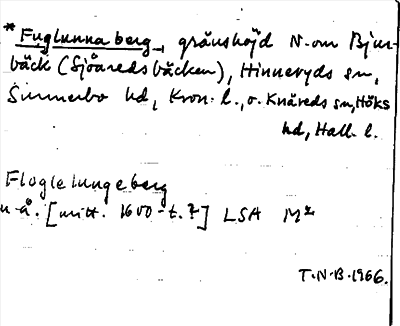 *Fuglunnaberg, gränshöjd N. om Bjur-
bäck (Sjöaredsbäcken), Hinneryds sn,
Sunnerbo hd, Kron. l., o. Knäreds sn, Höks
hd, Hall. l.
Floglelungeberg
u.å. [mitt. 1600-t.?] LSA M²
T.N.B. 1966.